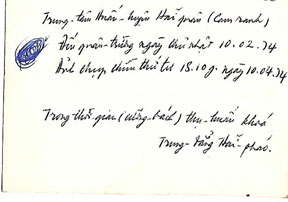 Trung-tâm Huấn-luyện Hải quân (Cam ranh)
Đến quân-trường ngày thứ nhật 10.02.74
Ảnh chụp chiều thứ tư 18.10g. ngày 10.04.74
Trong thời-gian (cũng-bách) thụ-huấn khoá
Trung-đẳng Hải-pháo.